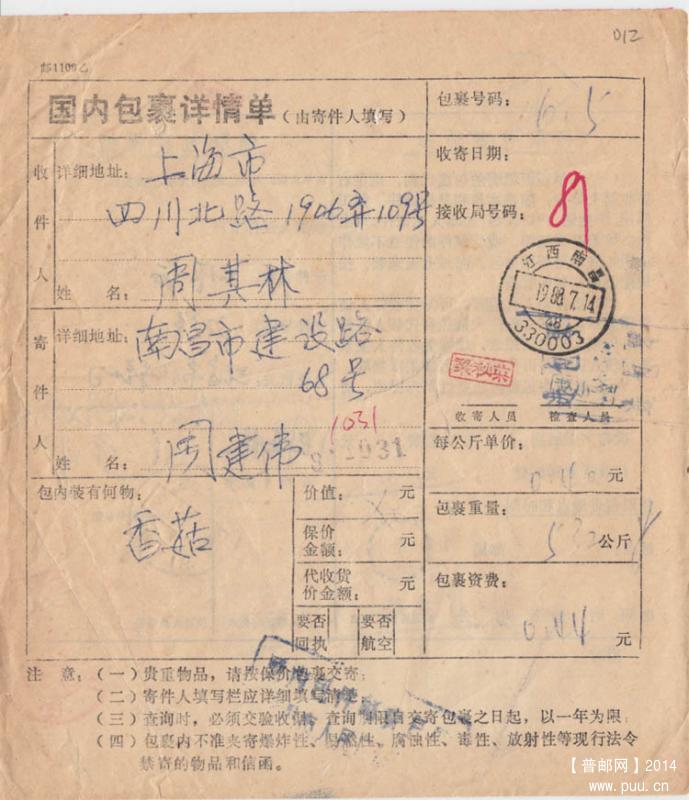 012
邮1109乙
国内包裹详情单（由寄件人填写）
包裹号码： 65
收件人
详细地址： 上海市
四川北路1906弄109号
姓名： 周其林
收寄日期：
接收局号码： 81
江西南昌
1988.7.14
48
330003
寄件人
详细地址： 南昌市建设路
68号
1031
1031
姓名： 周建伟
收寄人员
检查人员
每公斤单价： 0.40 元
包内装有何物：
香菇
价值： 元
保价金额： 元
代收货价金额： 元
要否回执
要否航空
包裹重量： 公斤
包裹资费： 0.44 元
注意：（一）贵重物品，请按保价包裹交寄；
（二）寄件人填写栏应详细填写清楚；
（三）查询时，必须交验收据，查询期限自交寄包裹之日起，以一年为限；
（四）包裹内不准夹寄爆炸性、易燃性、腐蚀性、毒性、放射性等现行法令
禁寄的物品和信函。
【普邮网】2014
www.puu.cn